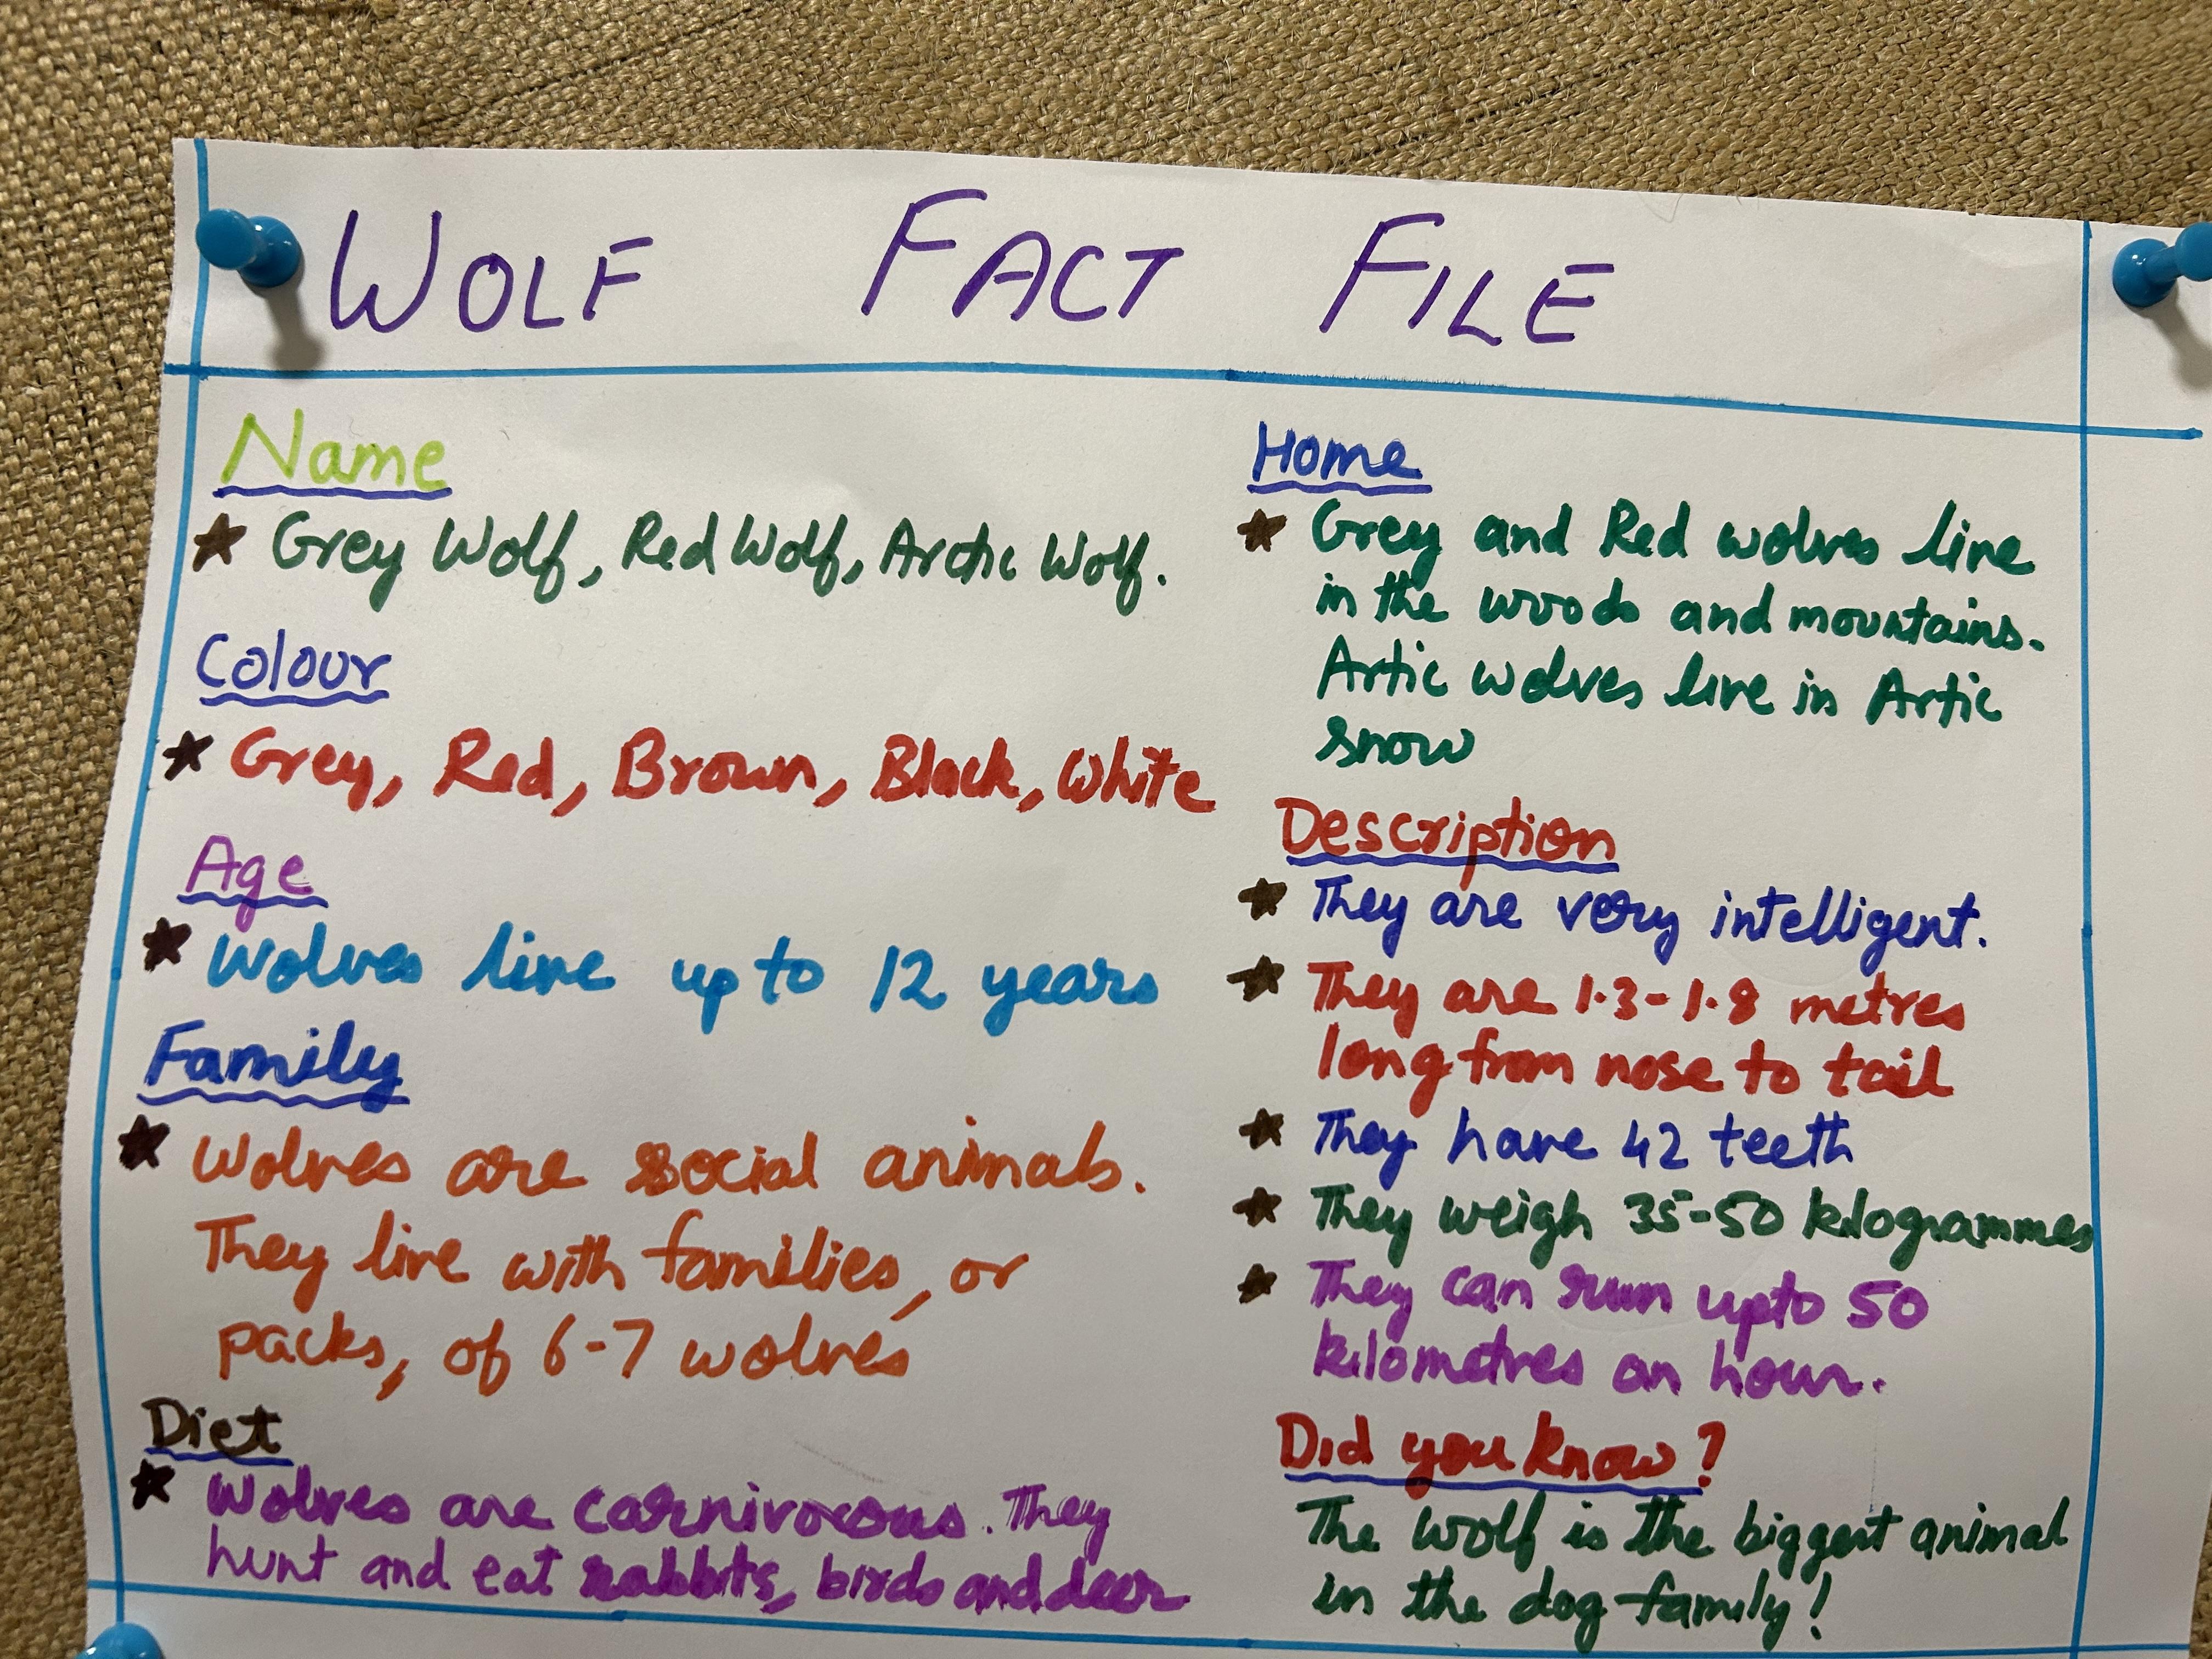 WOLF FACT FILE
Name
Grey Wolf, Red Wolf, Arctic Wolf.
Colour
Grey, Red, Brown, Black, White
Age
Wolves live up to 12 years
Family
Wolves are social animals.
They live with families, or
packs, of 6-7 wolves
Diet
Wolves are carnivorous. They
hunt and eat rabbits, birds and deer
Home
Grey and Red wolves live
in the woods and mountains.
Artic wolves live in Artic
snow
Description
They are very intelligent.
They are 1.3-1.8 metres
long from nose to tail
They have 42 teeth
They weigh 35-50 kilogrammes
They can run upto 50
kilometres an hour.
Did you know?
The wolf is the biggest animal
in the dog family!